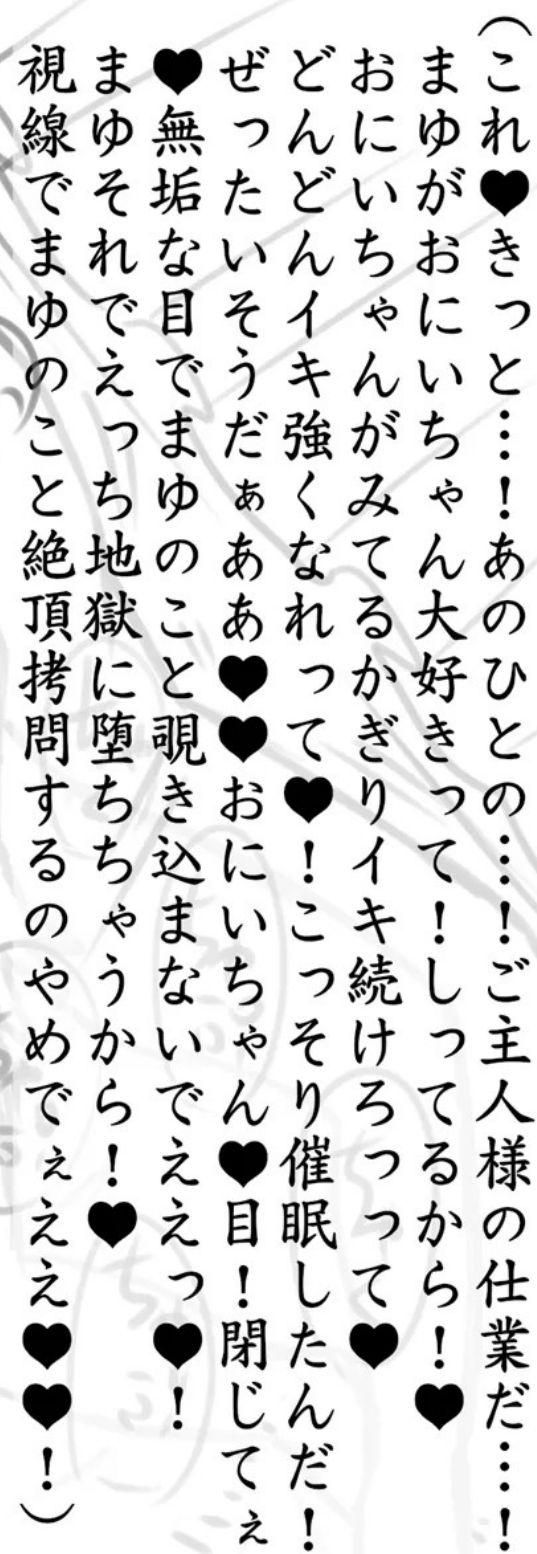 （これ♥きっと…！あのひとの…！ご主人様の仕業だ…！
まゆがおにいちゃん大好きって！しってるから！♥
おにいちゃんがみてるかぎりイキ続けろっって♥
どんどんイキ強くなれって♥！こっそり催眠したんだ！
ぜったいそうだぁああ♥♥おにいちゃん♥目！閉じてぇ
♥無垢な目でまゆのこと覗き込まないでええっ♥！
まゆそれでえっち地獄に堕ちちゃうから！♥
視線でまゆのこと絶頂拷問するのやめでぇええ♥♥！）